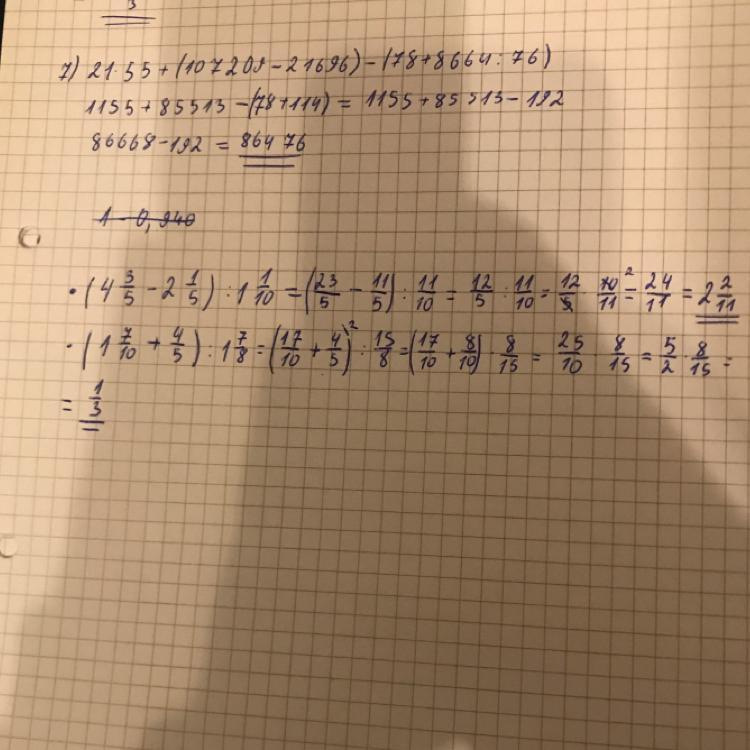 3
7) 21·55+(107209-21696)-(78+8664:76)
1155+85513-(78+114) = 1155+85513-192
86668-192 = 86476
1-0,940
• (4 3/5 - 2 1/5) : 1 1/10 = (23/5 - 11/5) : 11/10 = 12/5 : 11/10 = 12/5 · 10/11 2 = 24/11 = 2 2/11
• (1 7/10 + 4/5) : 1 7/8 = (17/10 + 4/5 \2) : 15/8 = (17/10 + 8/10) · 8/15 = 25/10 · 8/15 = 5/2 · 8/15 =
= 1/3